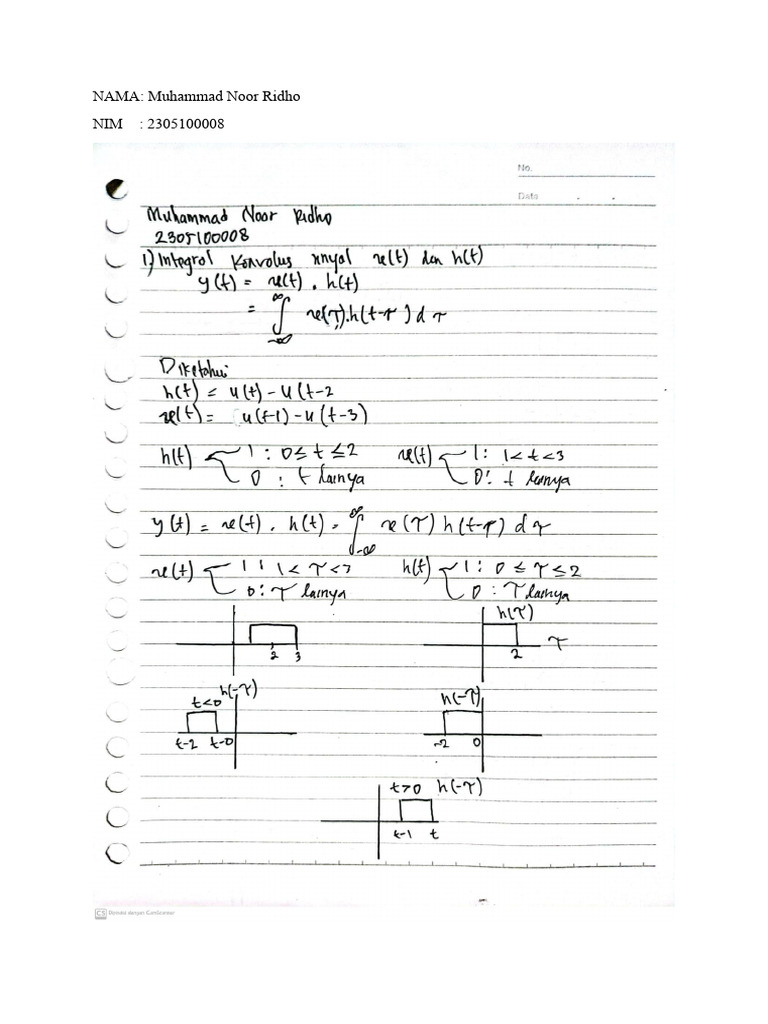 NAMA: Muhammad Noor Ridho
NIM : 2305100008
No.
Date . .
Muhammad Noor Ridho
2305100008
1) Integral Konvolus xnyol x(t) dan h(t)
y(t) = x(t) . h(t)
= ∫ -∞ ∞ x(τ).h(t-τ) d τ
Diketahui
h(t) = u(t) - u(t-2
x(t) = u(t-1) - u(t-3)
h(t) 1 : 0 ≤ t ≤ 2 x(t) 1 : 1 < t < 3
0 : t lainya 0 : t lainya
y(t) = x(t) . h(t) = ∫ -∞ ∞ x(τ) h(t-τ) d τ
x(t) 1 : 1 < τ < 3 h(t) 1 : 0 ≤ τ ≤ 2
0 : τ lainya 0 : τ lainya
h(τ)
2 3 2 τ
t<0 h(-τ) h(-τ)
t-2 t-0 -2 0
t>0 h(-τ)
t-1 t
CS Dipindai dengan CamScanner